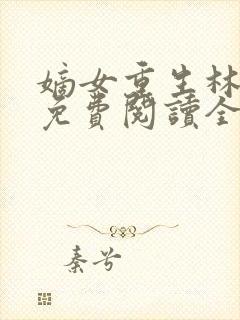 嫡女重生林
免費閱讀全
秦兮